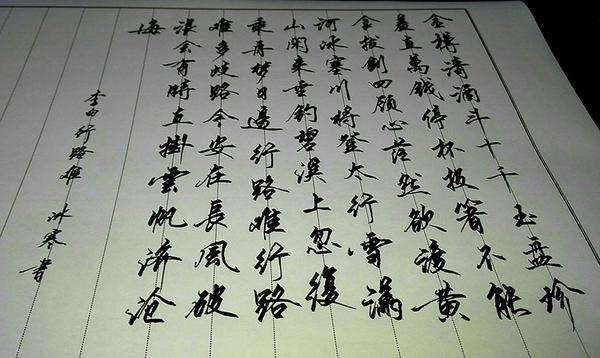 金樽清酒斗十千玉盘珍
羞直萬錢停杯投箸不能
食拔劍四顧心茫然欲渡黄
河冰塞川將登太行雪滿
山閑來垂釣碧溪上忽復
乘舟梦日邊行路難行路
難多歧路今安在長風破
浪會有時直掛雲帆濟滄
海
李白行路難 冰寒書